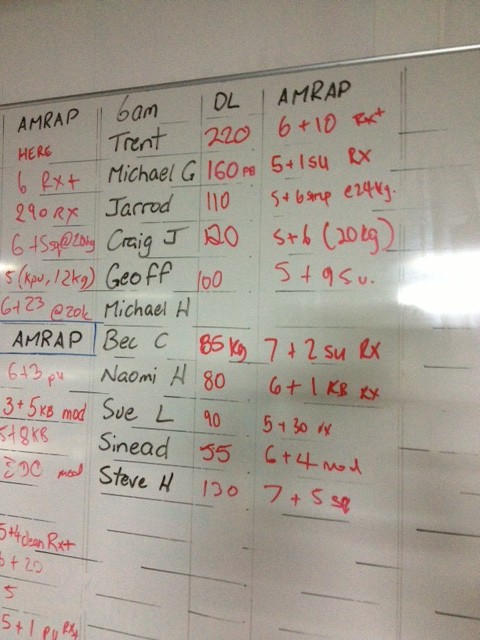 AMRAP 6am DL AMRAP
HERE Trent 220 6 + 10 Rx+
6 Rx+ Michael G 160 PB 5 + 1 su RX
290 RX Jarrod 110 5 + 6 @24kg.
6 + 5 @20kg Craig J 120 5 + 6 (20kg)
5 (kpu, 12kg) Geoff 100 5 + 9 Su.
6+23 @20k Michael H
AMRAP Bec C 85 kg 7 + 2 su RX
6+3 pu Naomi H 80 6 + 1 KB RX
3+5 KB mod Sue L 90 5 + 30 rx
5+8KB Sinead 55 6 + 4 mod
mod Steve H 130 7 + 5 sq
5+4 clean Rx+
6 + 20
5
5 + 1 pu Rx+